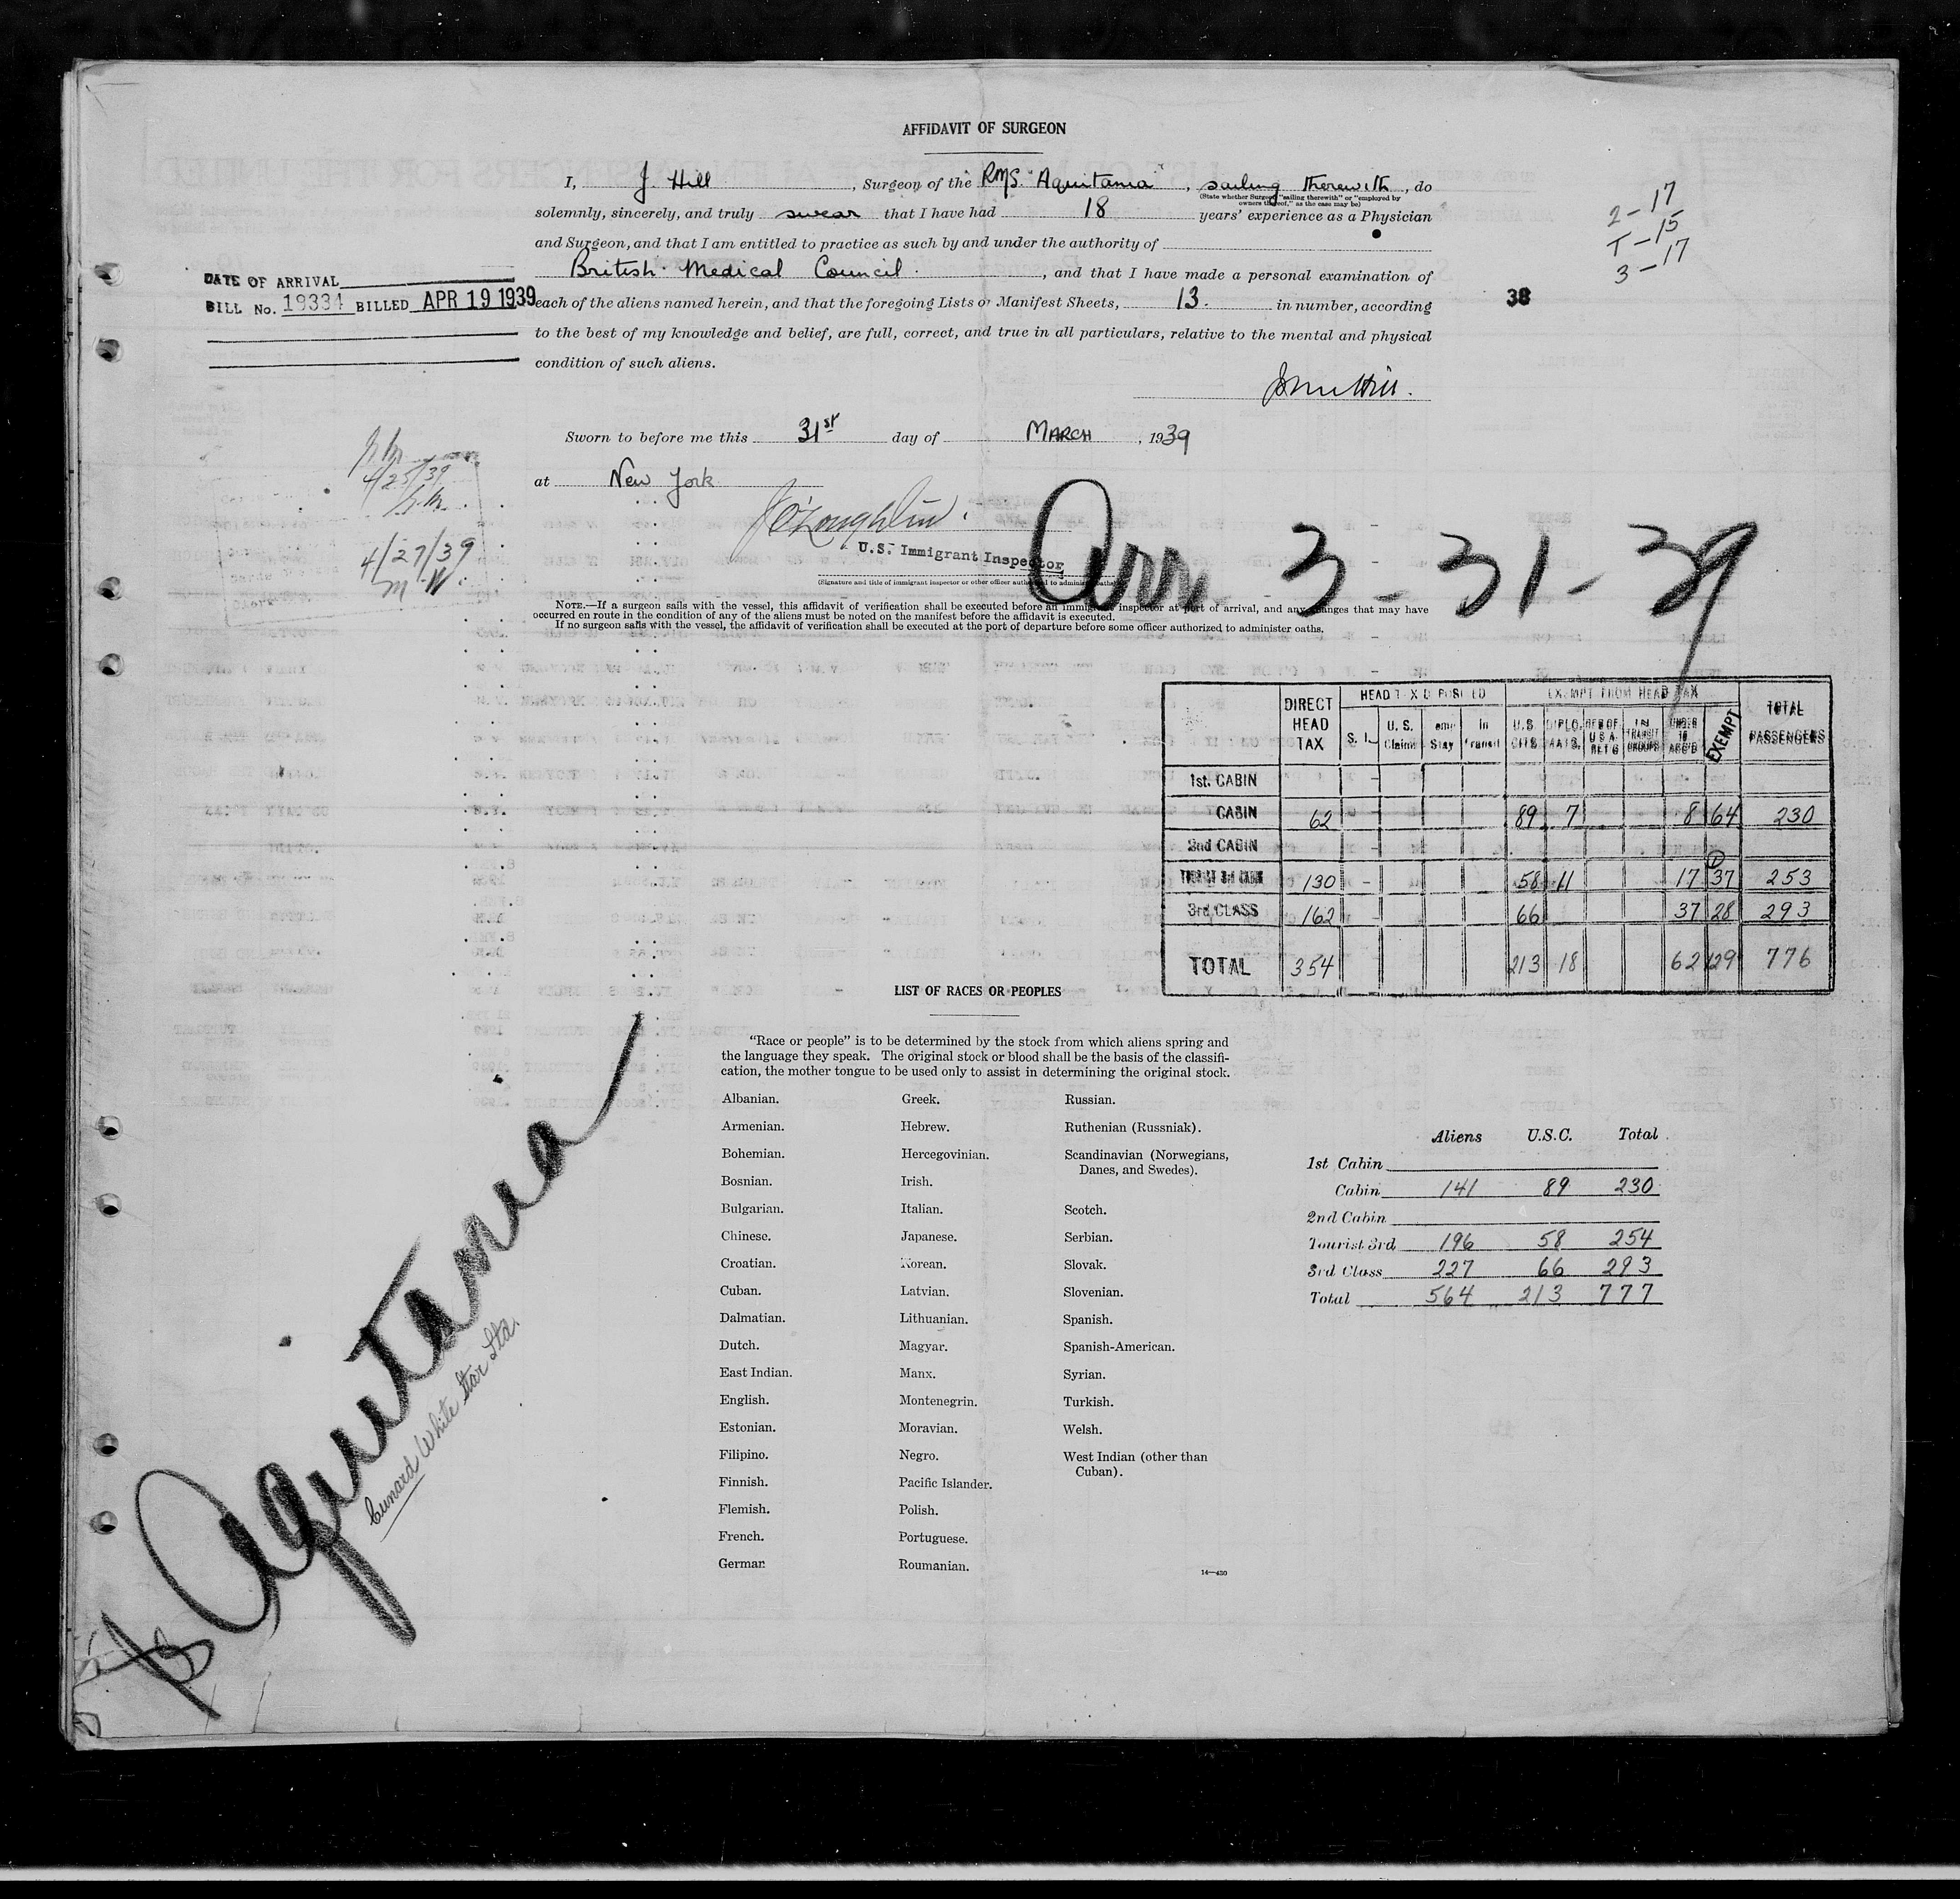 AFFIDAVIT OF SURGEON
I, J. Hill, Surgeon of the RMS "Aquitania", sailing therewith, do
(State whether Surgeon "sailing therewith" or "employed by
owners thereof," as the case may be)
solemnly, sincerely, and truly swear that I have had 18 years' experience as a Physician
and Surgeon, and that I am entitled to practice as such by and under the authority of
British Medical Council., and that I have made a personal examination of
each of the aliens named herein, and that the foregoing Lists or Manifest Sheets, 13. in number, according
to the best of my knowledge and belief, are full, correct, and true in all particulars, relative to the mental and physical
condition of such aliens.
2-17
T-15
3-17
38
DATE OF ARRIVAL
BILL No. 19334 BILLED APR 19 1939
John Hill.
Sworn to before me this 31st day of MARCH, 1939
at New York
J O'Loughlin.
U.S. Immigrant Inspector
(Signature and title of immigrant inspector or other officer authorized to administer oaths)
4/25/39
4/27/39
Arr. 3-31-39
NOTE.—If a surgeon sails with the vessel, this affidavit of verification shall be executed before an immigrant inspector at port of arrival, and any changes that may have
occurred en route in the condition of any of the aliens must be noted on the manifest before the affidavit is executed.
If no surgeon sails with the vessel, the affidavit of verification shall be executed at the port of departure before some officer authorized to administer oaths.
DIRECT HEAD TAX
HEAD TAX DEPOSITED
S. I. U. S. Claim Stay in Transit
EXEMPT FROM HEAD TAX
U.S. CITS. DIPLO. MATS. RES OF U.S.A. RET'G IN TRANSIT GROUPS UNDER 16 ACC'D EXEMPT
TOTAL PASSENGERS
1st. CABIN
CABIN 62 89 7 8 64 230
2nd CABIN
TOURIST 3rd CABIN 130 58 11 17 37 253
3rd CLASS 162 66 37 28 293
TOTAL 354 213 18 62 129 776
LIST OF RACES OR PEOPLES
"Race or people" is to be determined by the stock from which aliens spring and
the language they speak. The original stock or blood shall be the basis of the classifi-
cation, the mother tongue to be used only to assist in determining the original stock.
Albanian.
Armenian.
Bohemian.
Bosnian.
Bulgarian.
Chinese.
Croatian.
Cuban.
Dalmatian.
Dutch.
East Indian.
English.
Estonian.
Filipino.
Finnish.
Flemish.
French.
German.
Greek.
Hebrew.
Hercegovinian.
Irish.
Italian.
Japanese.
Korean.
Latvian.
Lithuanian.
Magyar.
Manx.
Montenegrin.
Moravian.
Negro.
Pacific Islander.
Polish.
Portuguese.
Roumanian.
Russian.
Ruthenian (Russniak).
Scandinavian (Norwegians,
Danes, and Swedes).
Scotch.
Serbian.
Slovak.
Slovenian.
Spanish.
Spanish-American.
Syrian.
Turkish.
Welsh.
West Indian (other than
Cuban).
14—430
Aliens U.S.C. Total
1st Cabin
Cabin 141 89 230
2nd Cabin
Tourist 3rd 196 58 254
3rd Class 227 66 293
Total 564 213 777
Aquitania
Cunard White Star Ltd.